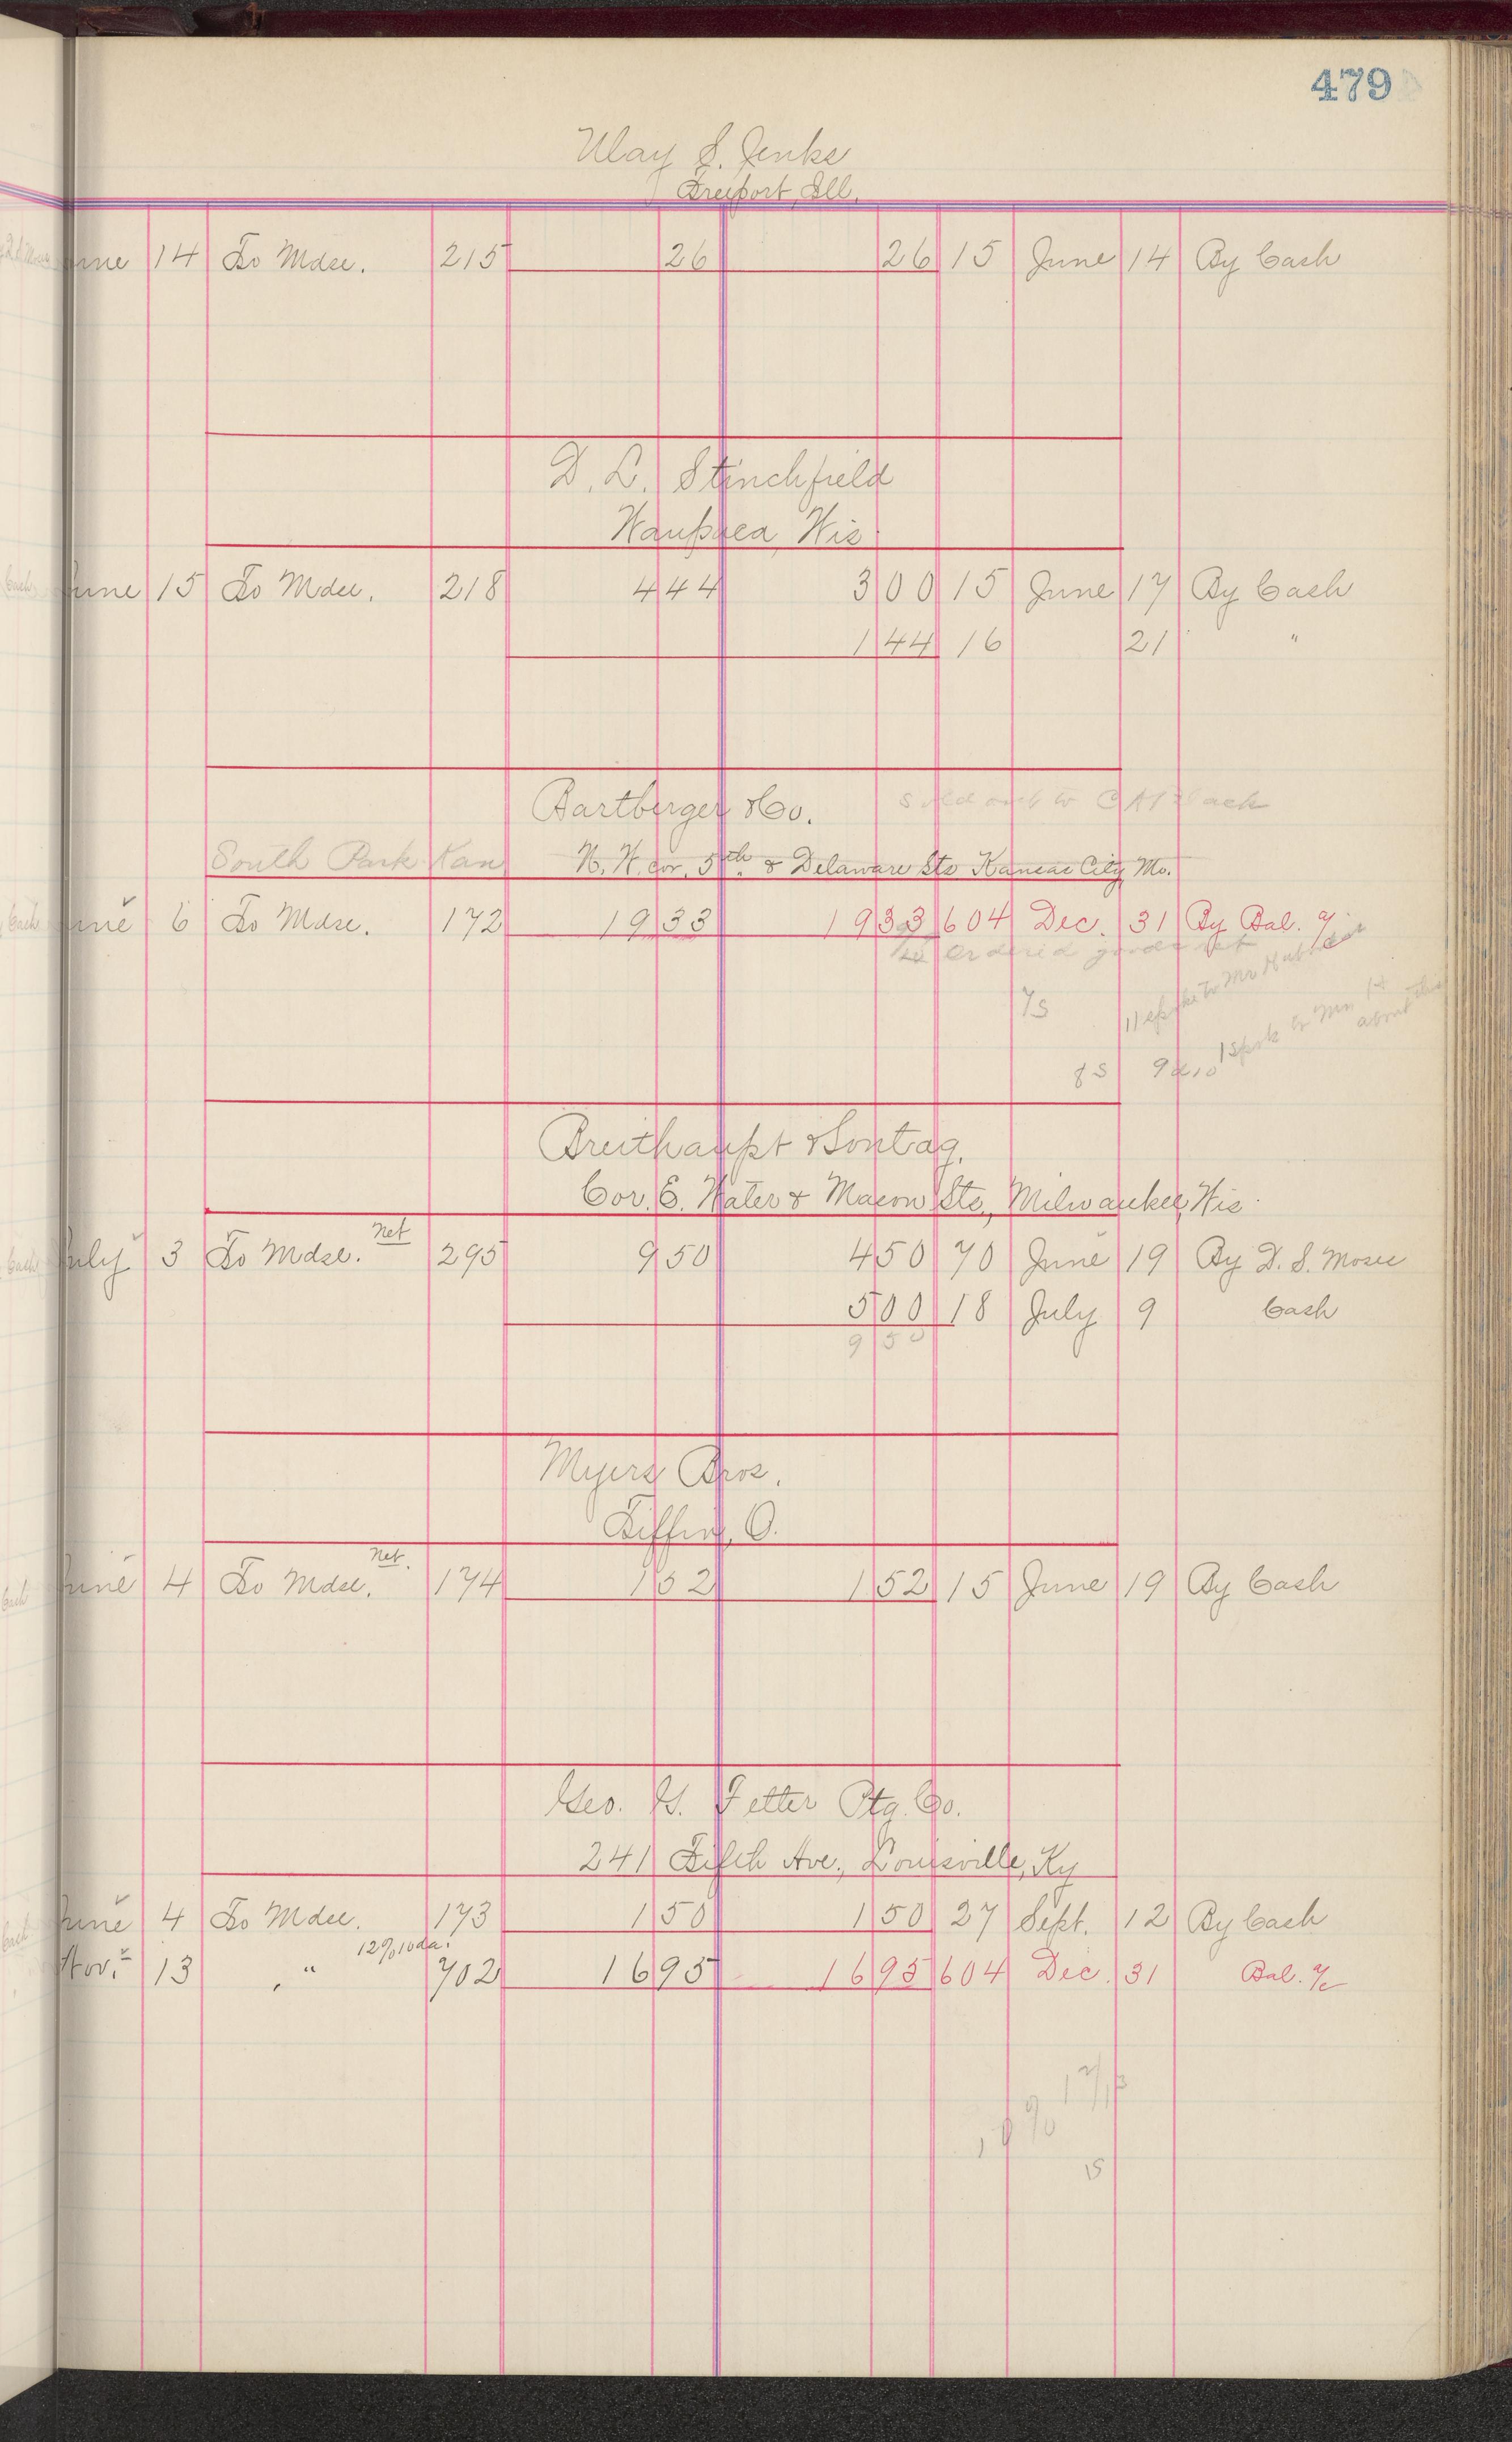 479
May S. Jenks
Freeport, Ill.
June 14 To Mdse. 215 26 26 15 June 14 By Cash
D. L. Stinchfield
Waupaca, Wis.
June 15 To Mdse. 218 4 44 3 00 15 June 17 By Cash
1 44 16 21 "
Bartberger & Co. Sold out to
South Park Kan N. W. cor. 5th & Delaware Sts Kansas City, Mo.
June 6 To Mdse. 172 19 33 19 33 604 Dec. 31 By Bal. a/c
ordered goods
Breithaupt & Sontag.
Cor. E. Water & Mason Sts., Milwaukee, Wis.
July 3 To Mdse. Net 295 9 50 4 50 70 June 19 By D. S. Moses
5 00 18 July 9 Cash
9 50
Myers Bros.
Tiffin, O.
June 4 To Mdse. Net. 174 1 52 1 52 15 June 19 By Cash
Geo. G. Fetter Ptg. Co.
241 Fifth Ave., Louisville, Ky
June 4 To Mdse. 173 1 50 1 50 27 Sept. 12 By Cash
Nov. 13 " 12% 10 da. 702 16 95 16 95 604 Dec. 31 Bal. a/c
15